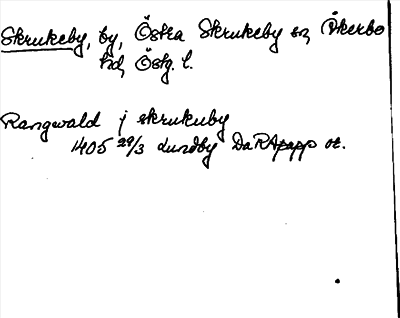 Skrukeby, by, Östra Skrukeby sn, Åkerbo
hd, Östg. l.
Rangwald j skrukuby
1405 29/3 Lundby DaRApapp or.